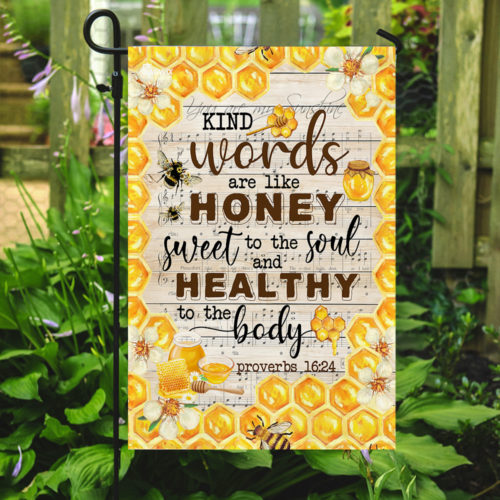 You are my Sunshine
KIND
words
are like
HONEY
sweet to the soul
and
HEALTHY
to the body
proverbs 16:24